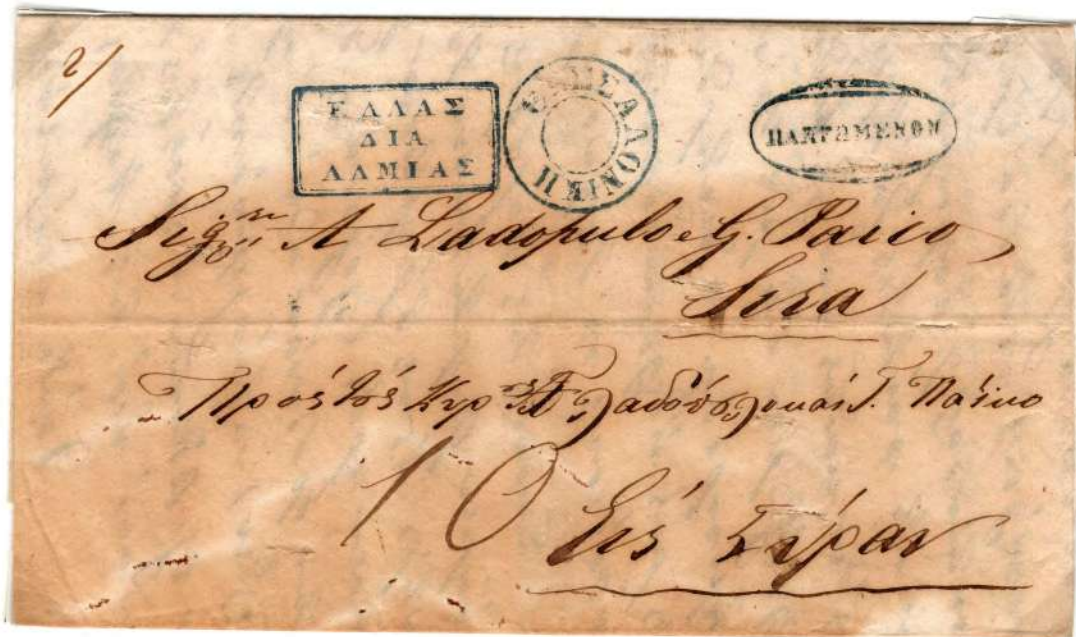 2/
ΕΛΛΑΣ
ΔΙΑ
ΛΑΜΙΑΣ
ΘΕΣΣΑΛΟΝΙΚΗ
Sig.ri A Ladopulo e G. Paico
Sira
Πρός τός Κυρ Λαδόπουλο καί Γ. Πάϊκο
10
Εἰς Σύραν